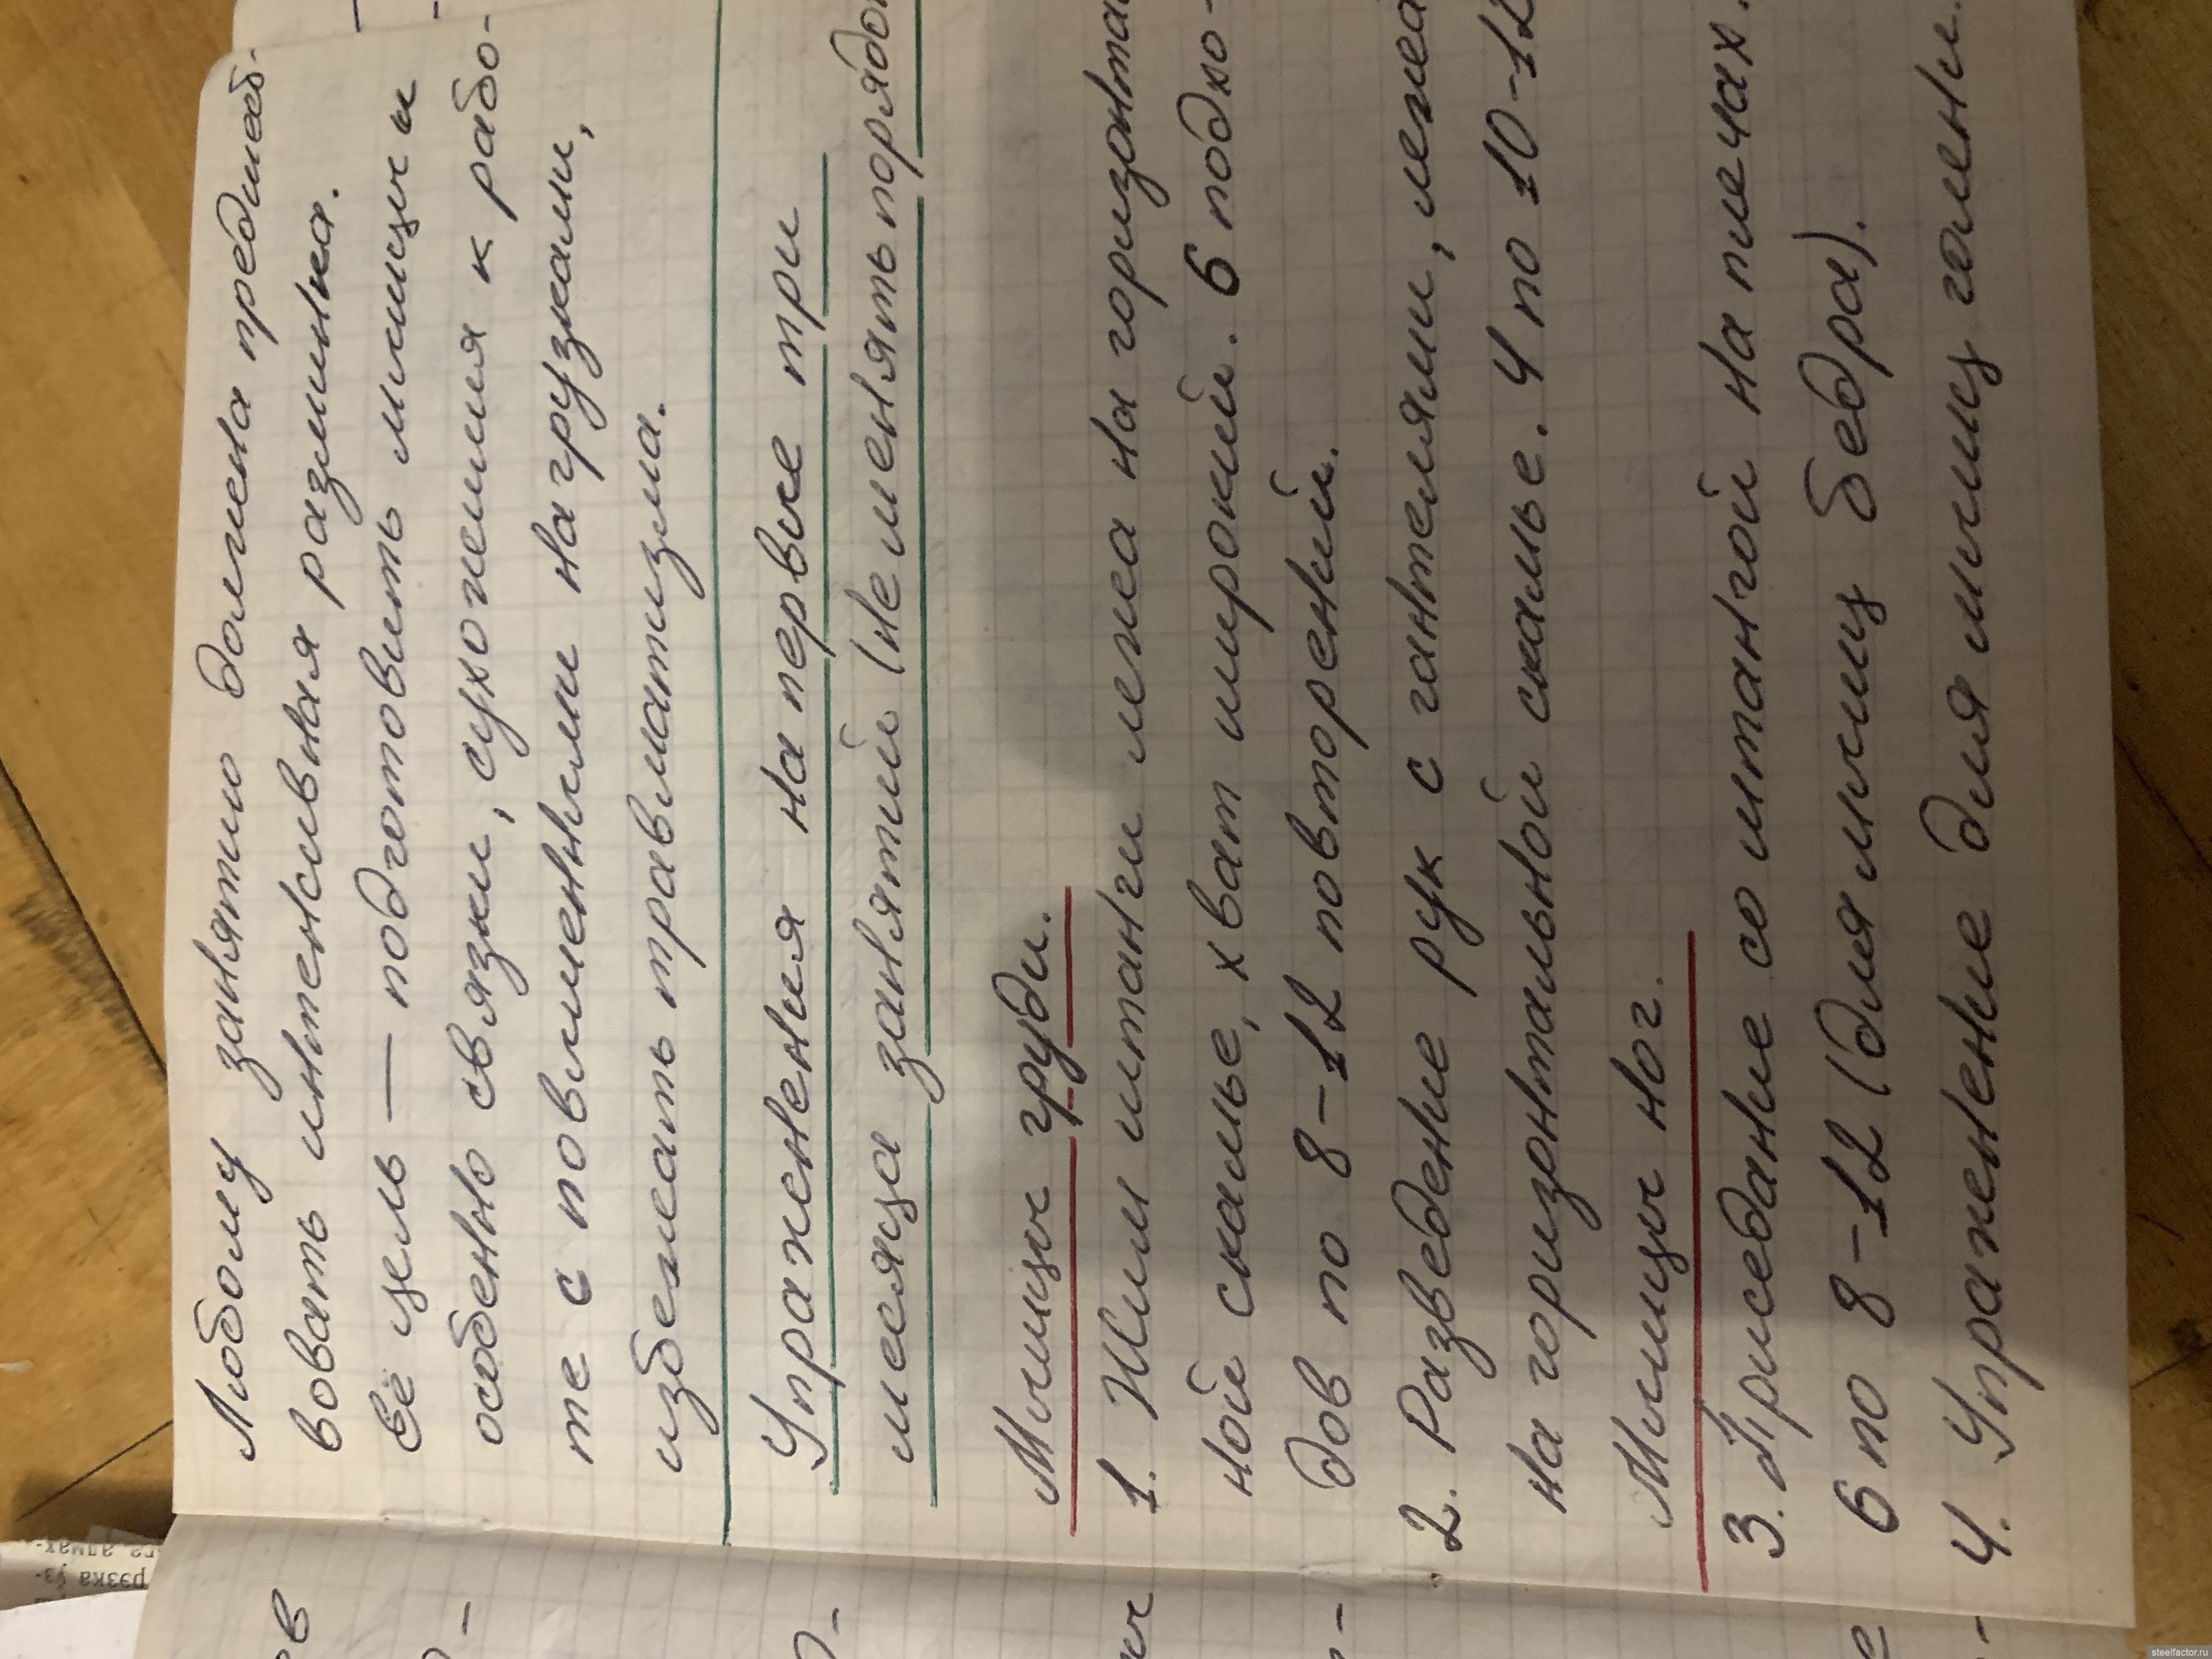 Любому занятию должна предшест-
вовать интенсивная разминка.
Её цель — подготовить мышцы и
особенно связки, сухожилия к рабо-
те с повышенными нагрузками,
избежать травматизма.
Упражнения на первые три
месяца занятий (не менять порядок
Мышцы груди.
1. Жим штанги лежа на горизонталь
ной скамье, хват широкий. 6 подхо-
дов по 8-12 повторений.
2. Разведение рук с гантелями, лежа
на горизонтальной скамье. 4 по 10-12
Мышцы ног.
3. Приседание со штангой на плечах.
6 по 8-12 (для мышц бедра).
4. Упражнение для мышц голени.
steelfactor.ru